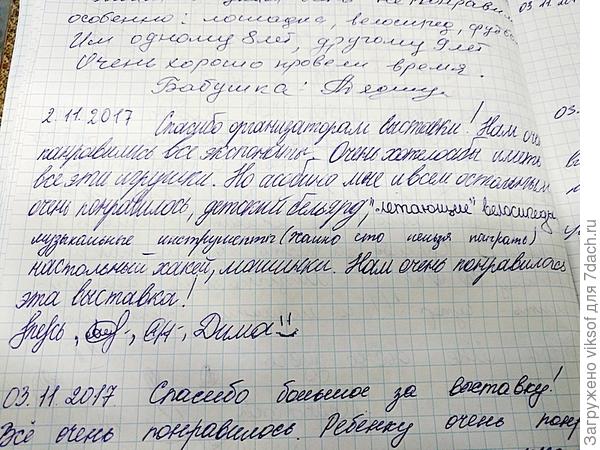 особенно: лошадка, велосипед, футбол
Им одному 8 лет, другому 9 лет
Очень хорошо провели время.
Бабушка:
2.11.2017 Спасибо организаторам выставки! Нам оче
понравились все экспонаты. Очень хотелось бы иметь
все эти игрушки. Но особино мне и всем остальным
очень понравилось, детский бильярд, "летающие" велосипеды
музыкальные инструменты (жалко что нельзя поиграть)
настольный хакей, машинки. Нам очень понравилась
эта выставка!
Дима
03.11.2017. Спасибо большое за выставку!
Всё очень понравилось. Ребенку очень понр
03.
Загружено viksof для 7dach.ru